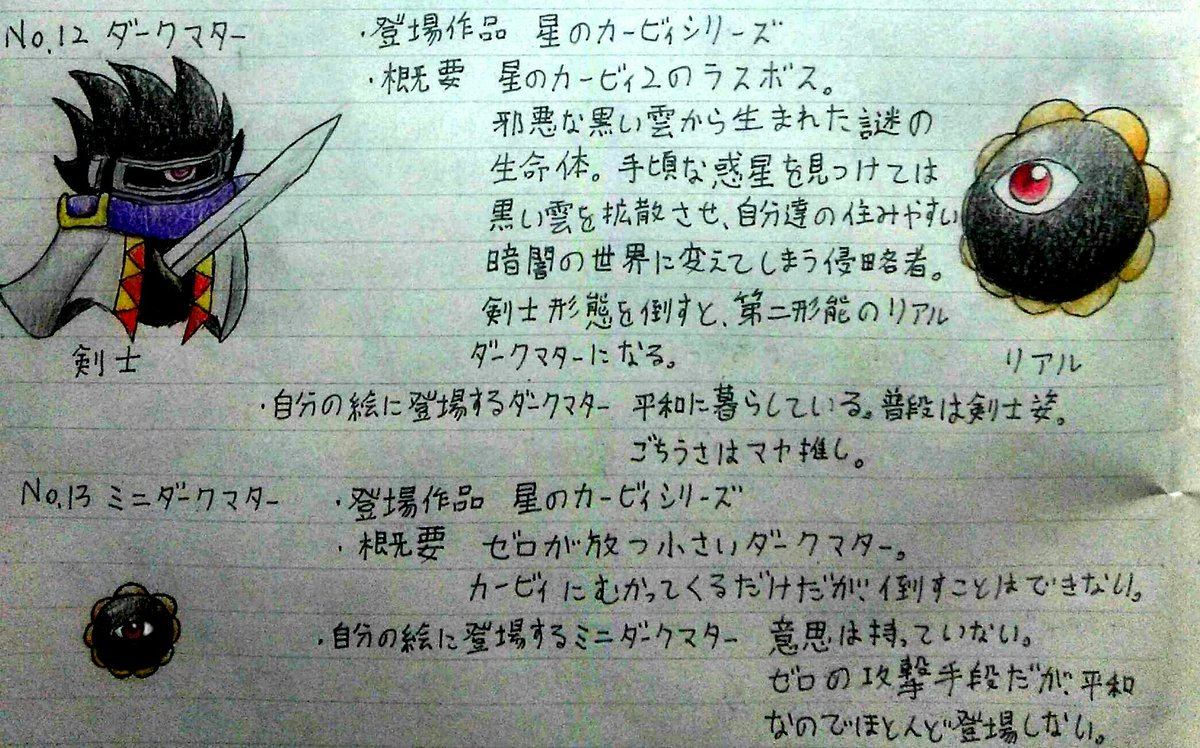 No.12 ダークマター
・登場作品 星のカービィシリーズ
・概要 星のカービィ2のラスボス。
邪悪な黒い雲から生まれた謎の
生命体。手頃な惑星を見つけては
黒い雲を拡散させ、自分達の住みやすい
暗闇の世界に変えてしまう侵略者。
剣士形態を倒すと、第二形能のリアル
ダークマターになる。
剣士
リアル
・自分の絵に登場するダークマター 平和に暮らしている。普段は剣士姿。
ごちうさはマヤ推し。
No.13 ミニダークマター
・登場作品 星のカービィシリーズ
・概要 ゼロが放つ小さいダークマター。
カービィにむかってくるだけだが、倒すことはできない。
・自分の絵に登場するミニダークマター 意思は持っていない。
ゼロの攻撃手段だが、平和
なのでほとんど登場しない。